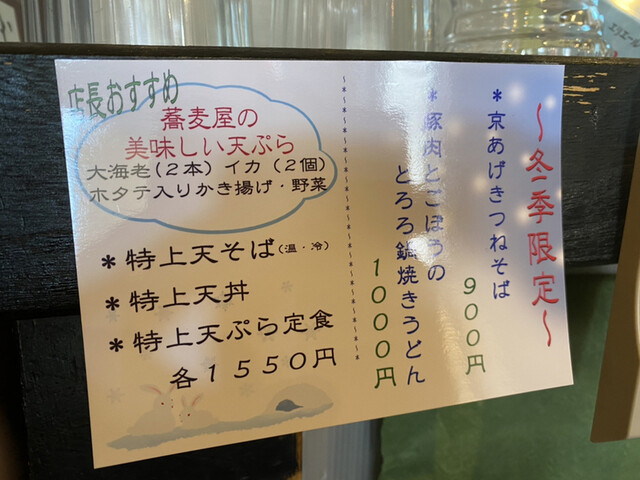 ～冬季限定～
＊京あげきつねそば
900円
＊豚肉とごぼうの
とろろ鍋焼きうどん
1000円
店長おすすめ
蕎麦屋の
美味しい天ぷら
大海老(2本) イカ (2個)
ホタテ入りかき揚げ・野菜
＊特上天そば(温・冷)
＊特上天丼
＊特上天ぷら定食
各1550円